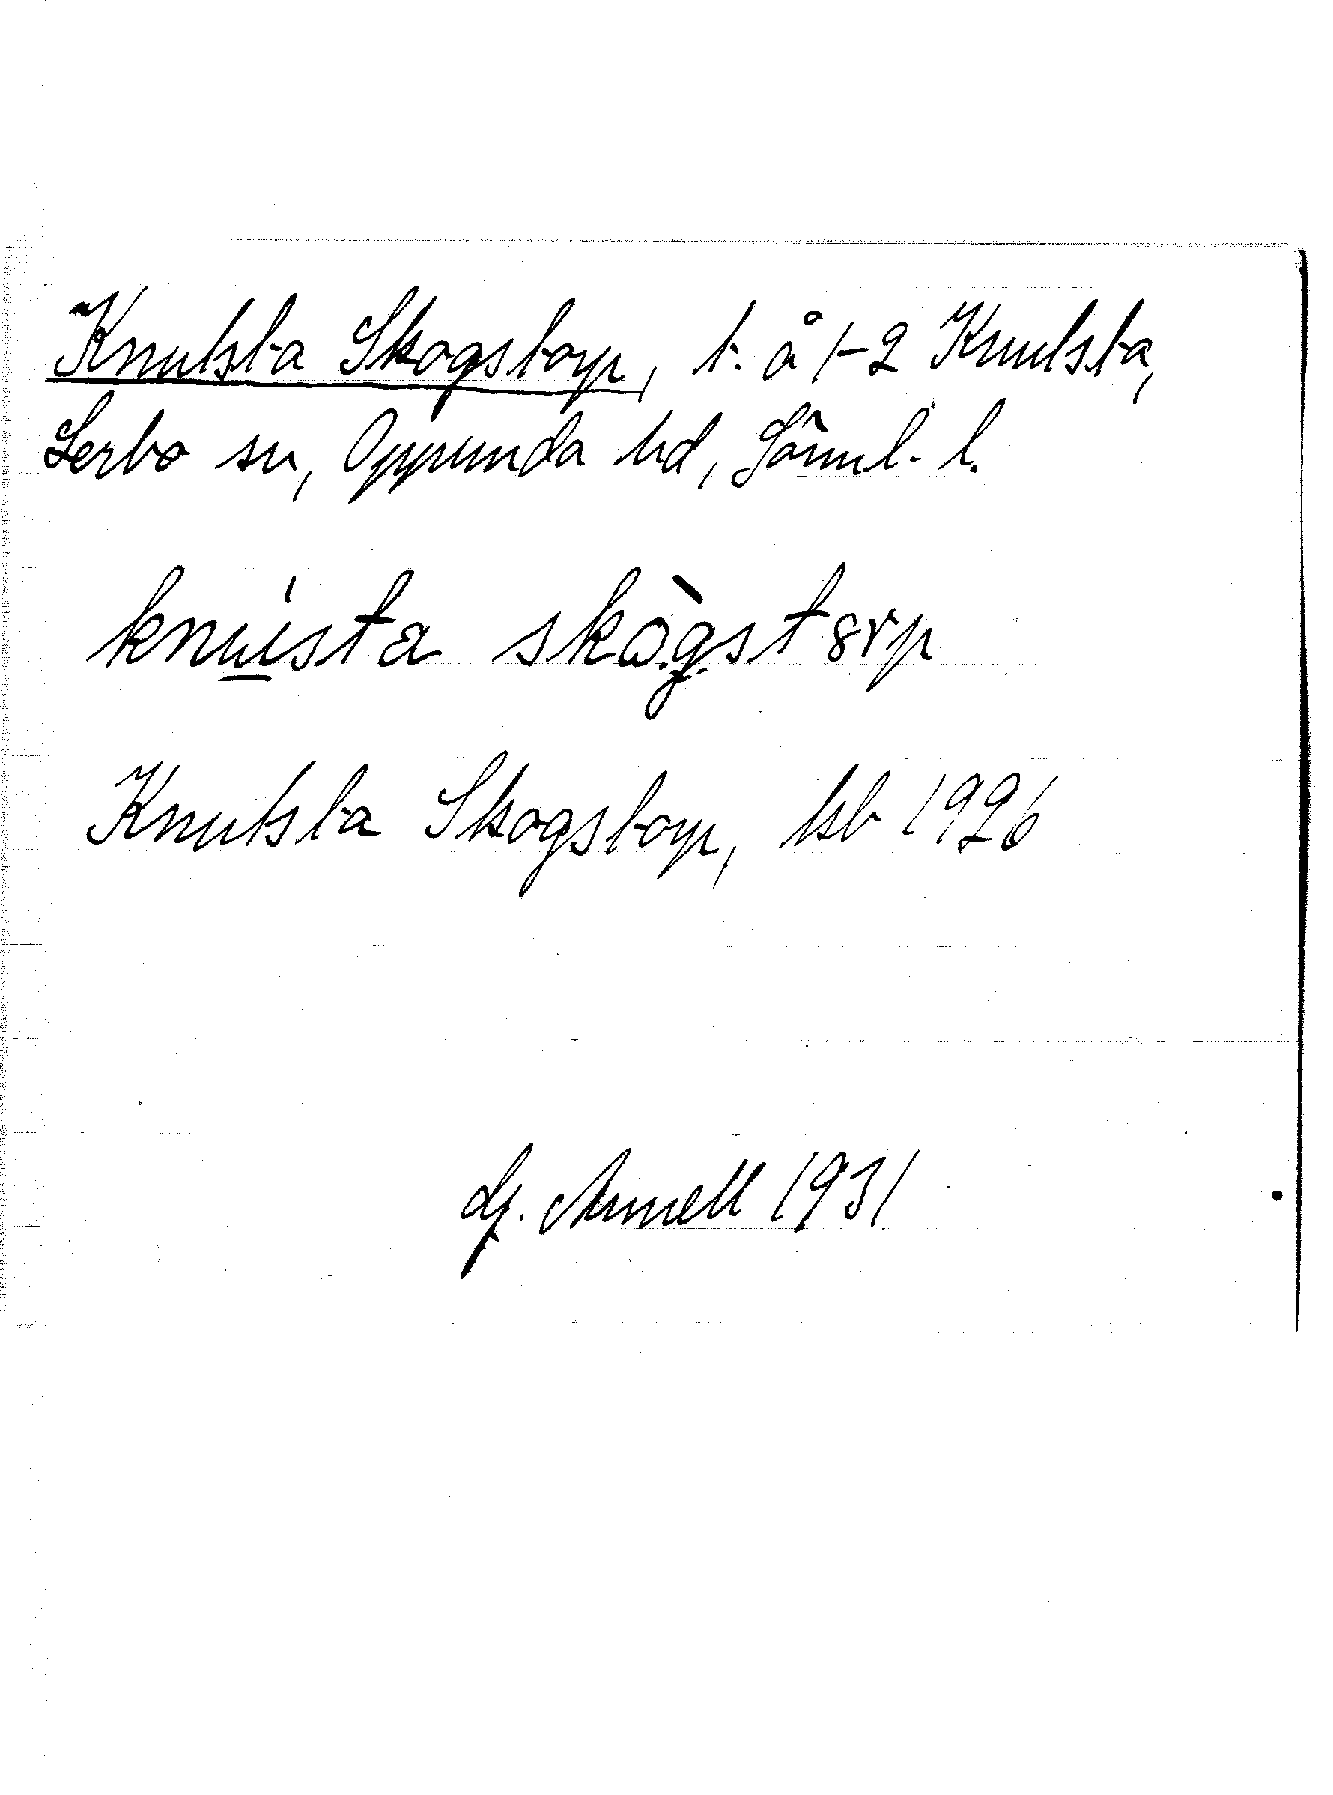 Knutsta Skogstorp, t. å 1-2 Knutsta,
Lerbo sn, Oppunda hd, Sörml. l.
knùsta skògstorp
Knutsta Skogstorp, ksb 1926
Lf. Arnell 1931